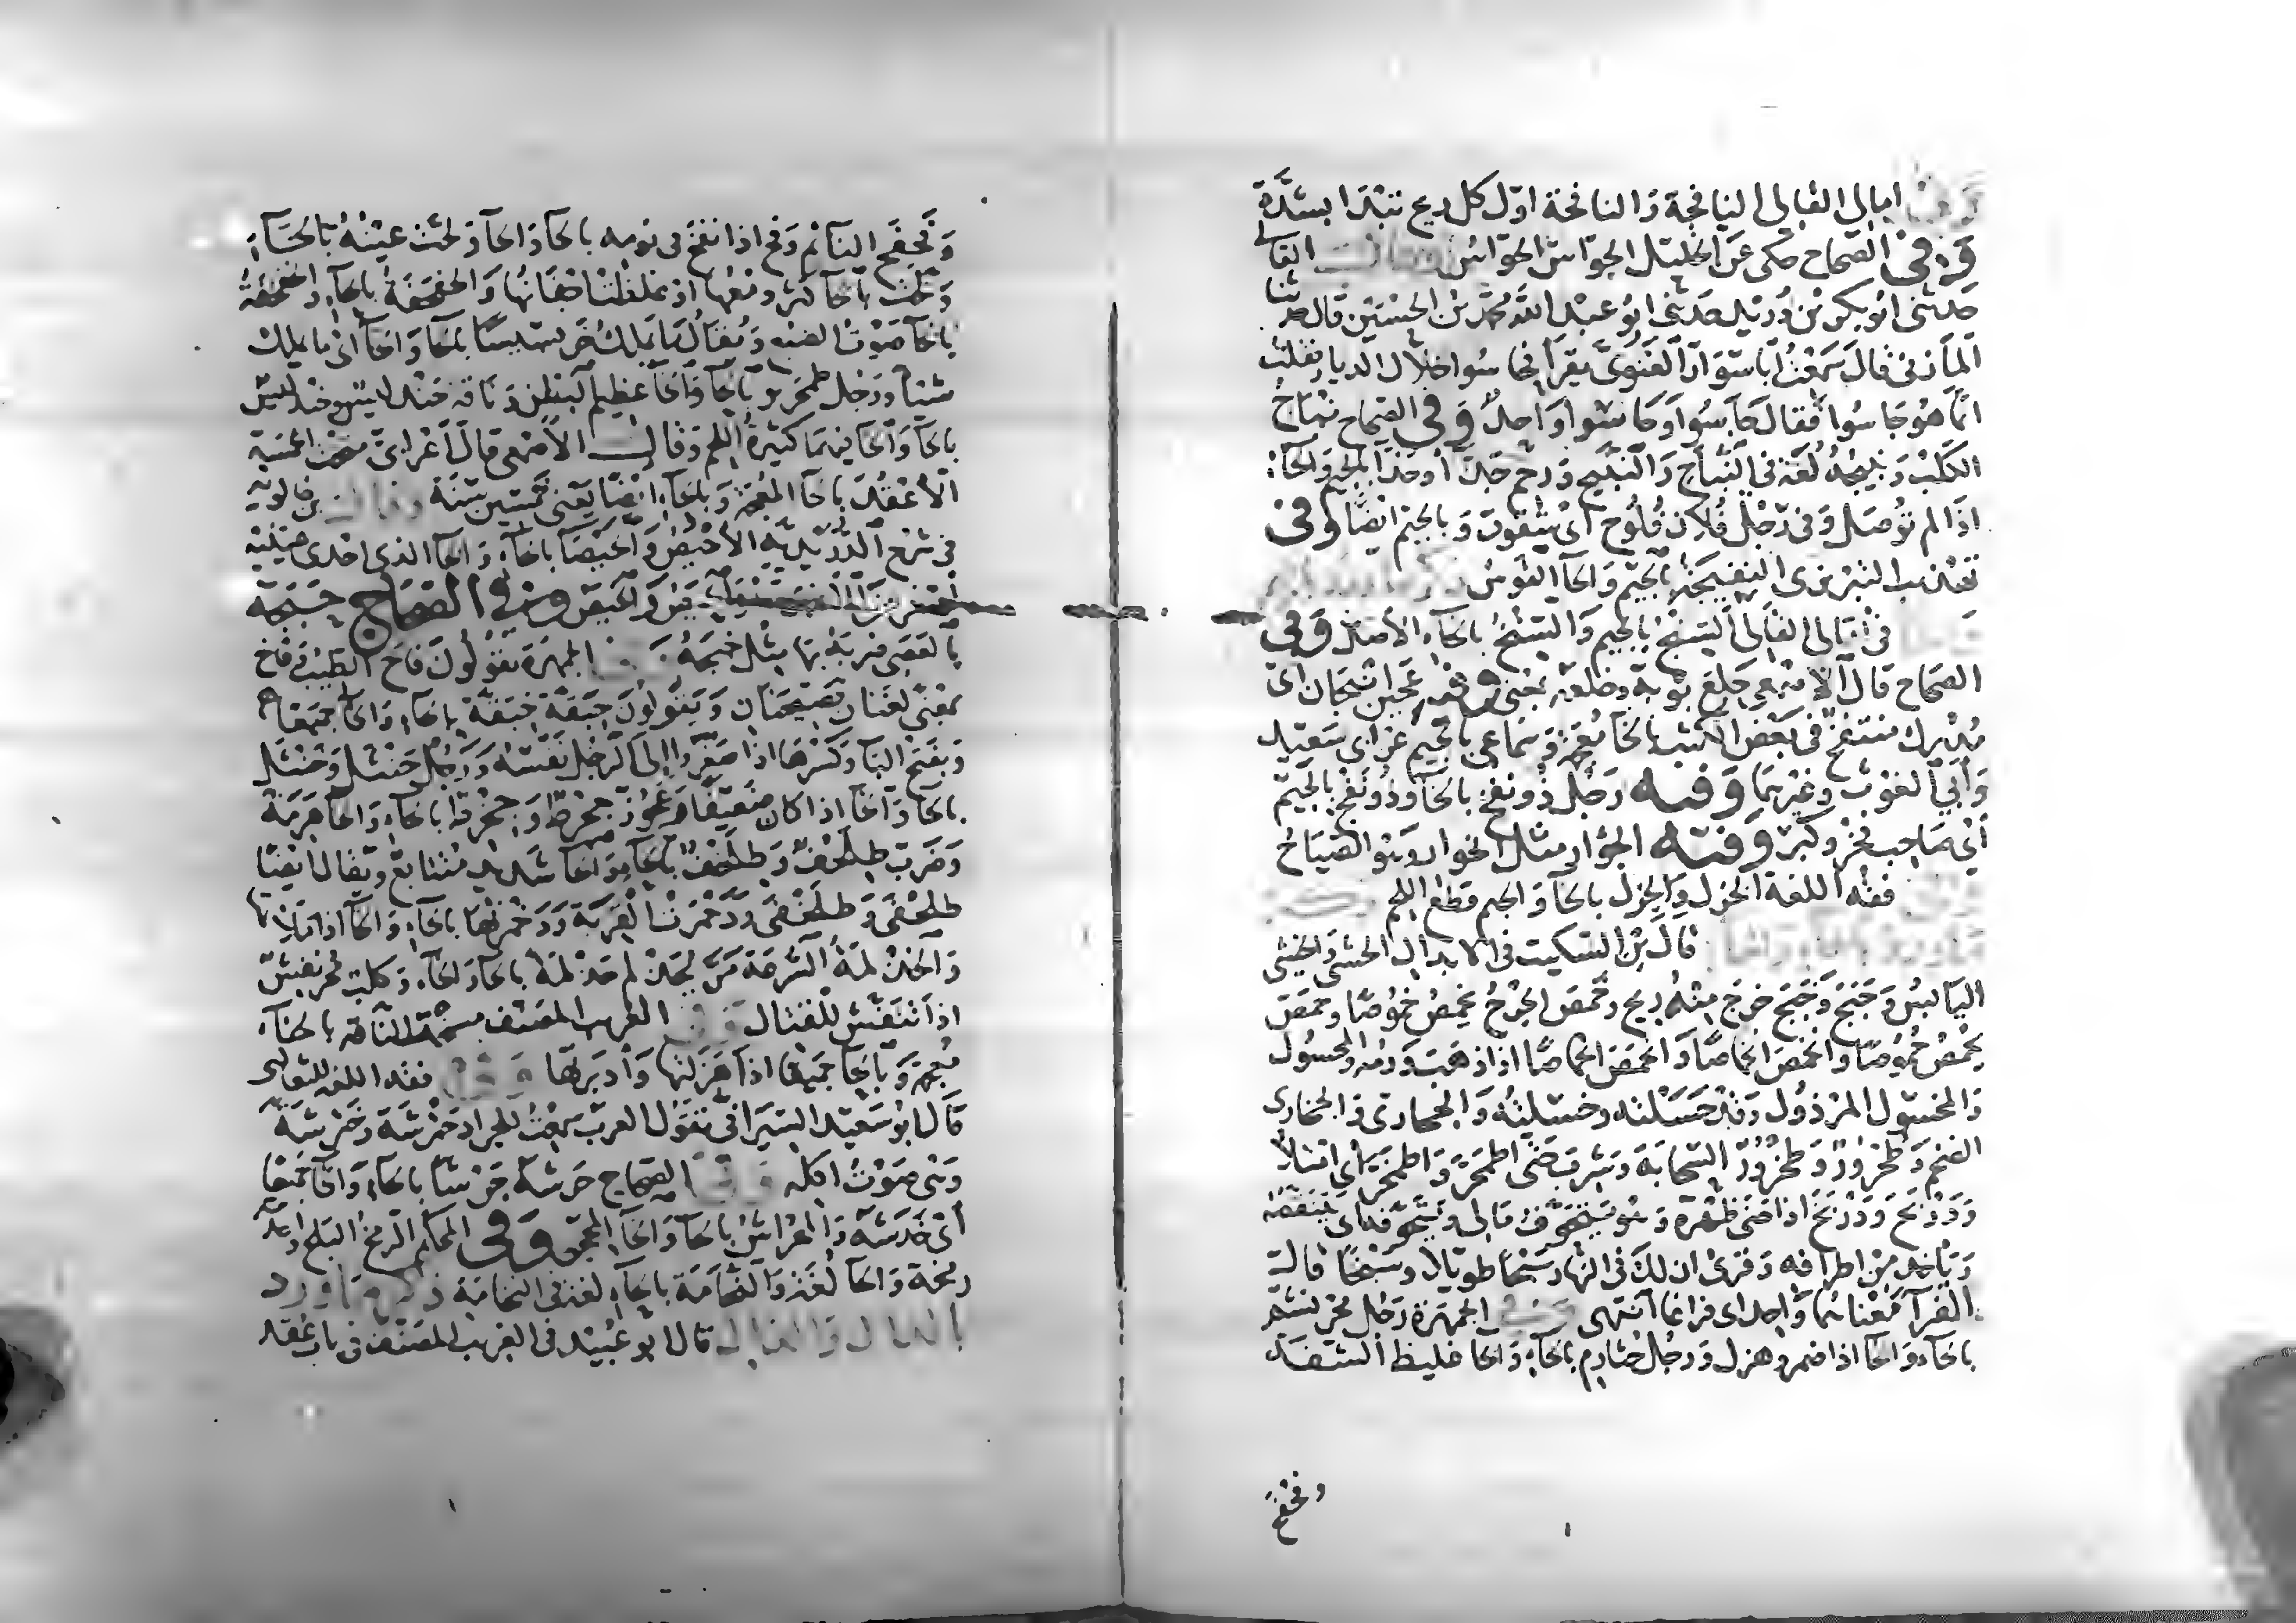 وفي امالي القالي النافجة والنافحة اول كل ريح تبدا بشدة
وفي الصحاح حكى عن الخليل الجواس الحواس القالي
حدثني ابو بكر بن دريد حدثني ابو عبد الله محمد بن الحسين قال حدثنا
المازني قال سمعت ابا سوار الغنوي يقرا فحاسوا خلال الديار فقلت
انما هو جاسوا فقال جاسوا وحاسوا واحد وفي الصحاح نباح
الكلب ونبيجه لغة في النباح والنبيح ورحم جذا وحذا بالجيم والحاء
اذا لم توصل وفي رجل فلان فلوح اي شقوق وبالجيم ايضا وفي
تهذيب التبريزي النفيجة بالجيم والحا القوس
في امالي القالي السنج بالجيم والسنخ بالخاء الاصل وفي
الصحاح قال الاصمعي جلع ثوبه وخلعه بمعنى وفيه عجين انبجان اي
مدرك منتفخ في بعض الكتب بالخا معجمة وسماعي بالجيم عن ابي سعيد
وابي الغوث وغيرهما وفيه رجل ذو نفخ بالخا وذو نفج بالجيم
اي صاحب فخر وكبر وفيه الجؤار مثل الخوار وهو الصياح
فقه اللغة الخزل والجزل بالخا والجيم قطع اللحم
ما ورد بالحاء والخاء قال بن السكيت في الابدال الحشي والخشي
اليابس وحبج وخبج خرج منه ريح وخمص الجرح يخمص خموصا وحمص
يحمص حموصا وانخمص انخماصا وانحمص انحماصا اذا ذهب ورمه والمحسول
والمخسول المرذول وقد حسلته وخسلته والجحادي والجخادي
الضخم وطحرور وطخرور السحابة وشرب حتى اطمحر واطمخر اي امتلا
ودربح ودربخ اذا حنى ظهره وهو يتخوف مالي ويتحوفه اي يتنقصه
وياخذ من اطرافه وقرئ ان لك في النهار سبحا طويلا وسبخا قال
الفرا معناهما واحد اي فراغا انتهى وفي الجمهرة رجل مخرنشم
بالحاء والخا اذا ضمر وهزل ورجل حثارم بالحاء والخا غليظ الشفة
وفحفح
وفحفح النائم وفخ اذا نفخ في نومه بالحاء والخا ولحت عينه بالحاء
ولخت بالخا كثر دمعها اذ غلظت اجفانها والخفخفة بالخاء والحفحفة
بالخا صوت الضبع ويقال ما يملك خربسيسا بالحا والخا اي ما يملك
شيئا ورجل طمحرير بالحا والخا عظيم البطن وناقة حندليس وخندليس
بالحا والخا فيهما كثيرة اللحم وقال الاصمعي قال اعرابي متحت الخمسة
الاعقد بالخا المعجمة وبالحا ايضا يعني خمسين سنة وقال بن خالويه
في شرح الدريدية الاخيص والخيصا بالحاء والخا الذي احدى عينيه
اصغر من الاخرى وفي الصحاح حبجه
بالعصى ضربه بها مثل خبجه وفي الجمهرة تقولون فاح الطيب وفاخ
بمعنى لغتان فصيحتان ويقولون حبقة خبقة بالخاء والحا جميعا
وبفتح البا وكسرها اذا صغروا الى الرجل نفسه ورجل حنثل وخنثل
بالحا والخا اذا كان ضعيفا وعجوز جحرط وجخرط بالخاء والحا هرمة
وضرب طلحف وطلخف بالحا والخا شديد متتابع ويقال ايضا
طلحفى وطلخفى ودحمرت القربة ودخمرتها بالحاء والخا اذا ملاتها
والحذلمة السرعة مر يحذلم حذلمة بالخا والحاء وكلب مخرنفش
اذا تنفش للقتال وفي الغريب المصنف مسخت الناقة بالخاء
معجمة وبالحا جميعا اذا هزلتها وادبرتها وفي فقه اللغة للثعالبي
قال ابو سعيد السيرافي تقول العرب سمعت للجراد حترشة وخترشة
وهي صوت اكله وفي الصحاح حرشه حرشا بالحاء والخا جميعا
اي خدشه والمهراش بالحا والخا المعجمة وفي المحكم الرمخ البلح واحدته
رمخة والحا لغة والنحامة بالحاء لغة في النخامة ذكر ما ورد
بالدال والذال قال ابو عبيد في الغريب المصنف في باب عقد